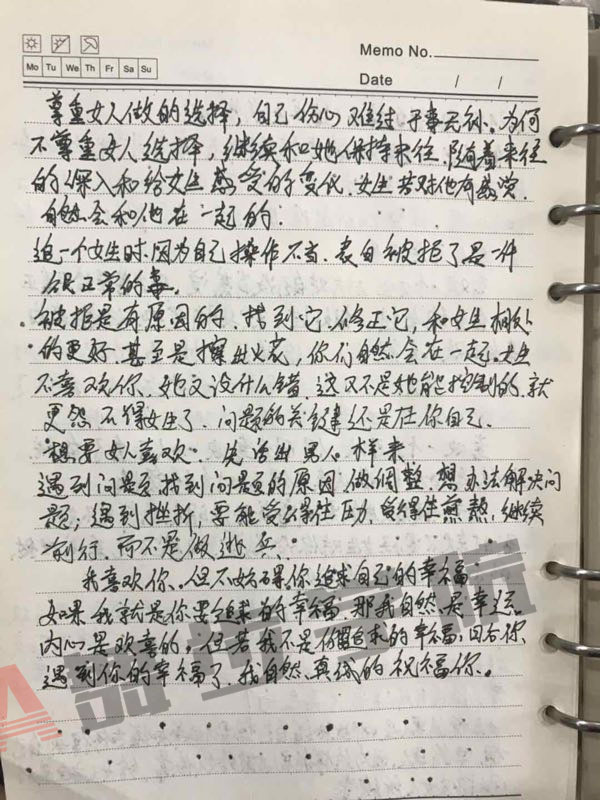 Memo No.
Mo Tu We Th Fr Sa Su
Date / /
尊重女人做的选择，自己伤心难过于事无补、为何
不尊重女人选择，继续和她保持来往.随着来往
的深入和给女生感受的变化.女生若对他有感觉.
自然会和他在一起的.
追一个女生时.因为自己操作不当.表白被拒了是一件
很正常的事.
被拒是有原因的.找到它.修正它，和女生相处
的更好.甚至是擦出火花，你们自然会在一起.女生
不喜欢你.她又没什么错.这又不是她能控制的.就
更怨不得女生了.问题的关键还是在你自己.
想要女人喜欢.先活出男人样来.
遇到问题.找到问题的原因.做调整.想办法解决问
题；遇到挫折，要能受得住压力.受得住煎熬.继续
前行.而不是做逃兵、
我喜欢你.但不妨碍你追求自己的幸福.
如果我就是你要追求的幸福.那我自然是幸运.
内心是欢喜的，但若我不是你追求的幸福.回合你
遇到你的幸福了.我自然真诚的祝福你。